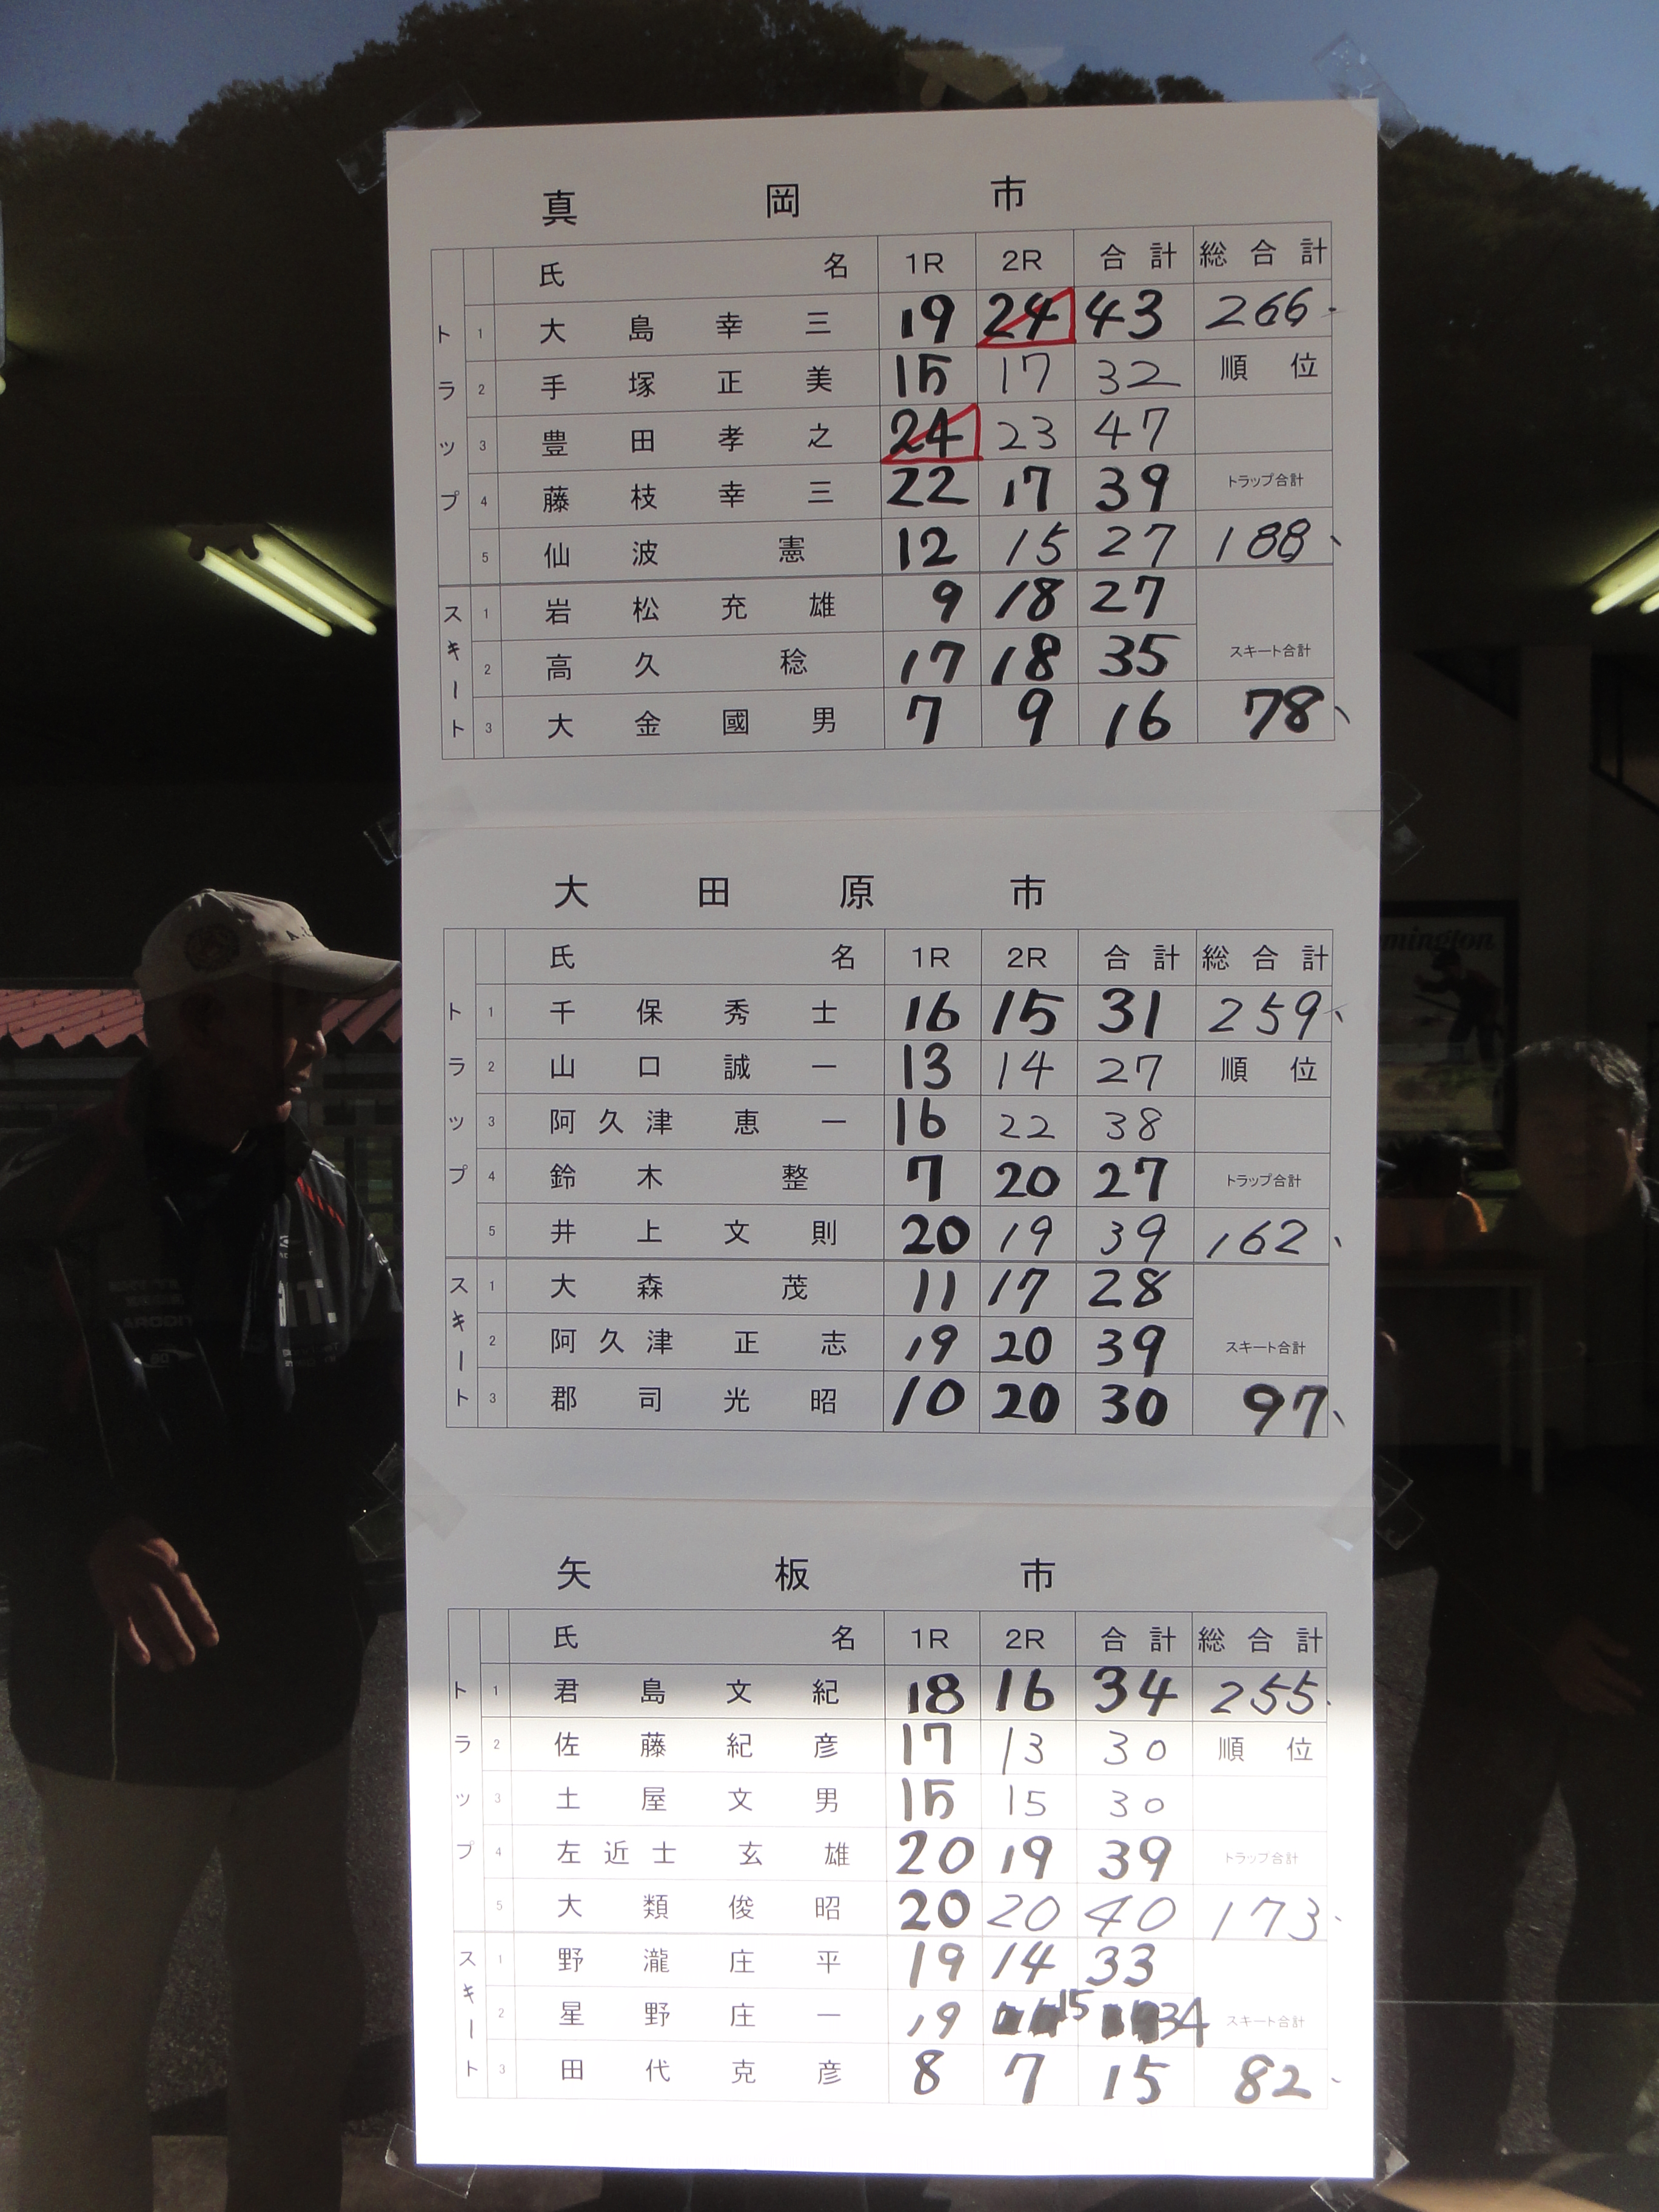 真岡市
氏名 1R 2R 合計 総合計
トラップ 1 大島幸三 19 24 43 266
2 手塚正美 15 17 32 順位
3 豊田孝之 24 23 47
4 藤枝幸三 22 17 39 トラップ合計
5 仙波憲 12 15 27 188
スキート 1 岩松充雄 9 18 27
2 高久稔 17 18 35 スキート合計
3 大金國男 7 9 16 78
大田原市
氏名 1R 2R 合計 総合計
トラップ 1 千保秀士 16 15 31 259
2 山口誠一 13 14 27 順位
3 阿久津恵一 16 22 38
4 鈴木整 7 20 27 トラップ合計
5 井上文則 20 19 39 162
スキート 1 大森茂 11 17 28
2 阿久津正志 19 20 39 スキート合計
3 郡司光昭 10 20 30 97
矢板市
氏名 1R 2R 合計 総合計
トラップ 1 君島文紀 18 16 34 255
2 佐藤紀彦 17 13 30 順位
3 土屋文男 15 15 30
4 左近士玄雄 20 19 39 トラップ合計
5 大類俊昭 20 20 40 173
スキート 1 野瀧庄平 19 14 33
2 星野庄一 19 15 34 スキート合計
3 田代克彦 8 7 15 82
mington